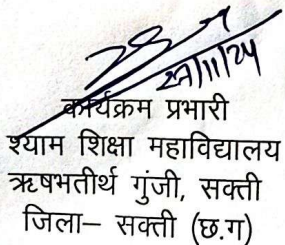 27/11/24
कार्यक्रम प्रभारी
श्याम शिक्षा महाविद्यालय
ऋषभतीर्थ गुंजी, सक्ती
जिला– सक्ती (छ.ग)